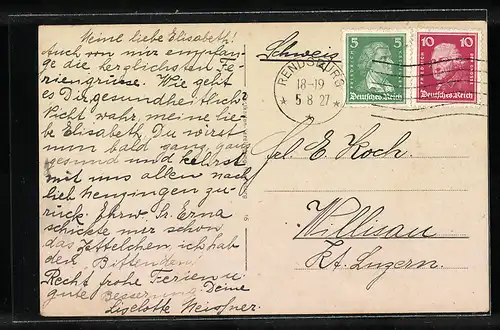 Meine liebe Elisabeth!
Auch von mir empfan-
ge die herzlichsten Fe-
riengrüsse. Wie geht
es Dir, gesundheitlich?
Nicht wahr, meine lie-
be Elisabeth, Du wirst
nun bald ganz, ganz
gesund und kehrst
mit uns allen nach
lieb Menzingen zu-
rück. Ehrw. Sr. Erna
schickte mir schon
das Zettelchen, ich hab
den Bittenden!
Recht frohe Ferien u.
gute Besserung Deine
Liselotte Meissner.
Schweiz
RENDSBURG
18-19
5 8 27
5 5
Deutsches Reich
10 10
Deutsches Reich
Frl. E. Koch.
Willisau
Kt. Luzern.